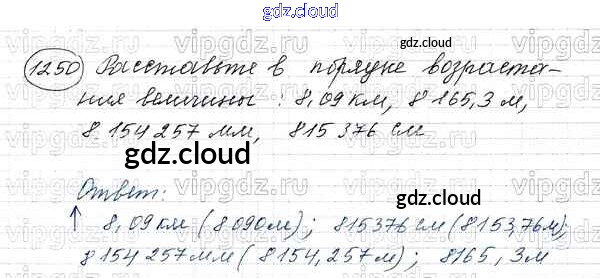 gdz.cloud
1250 Расставьте в порядке возраста-
ния величины: 8,09 км, 8 165,3 м,
8 154 257 мм, 815 376 см
gdz.cloud
gdz.cloud
Ответ:
gdz.cloud
↑ 8,09 км (8 090 м); 815376 см (8 153,76 м);
8 154 257 мм (8 154,257 м); 8165,3 м